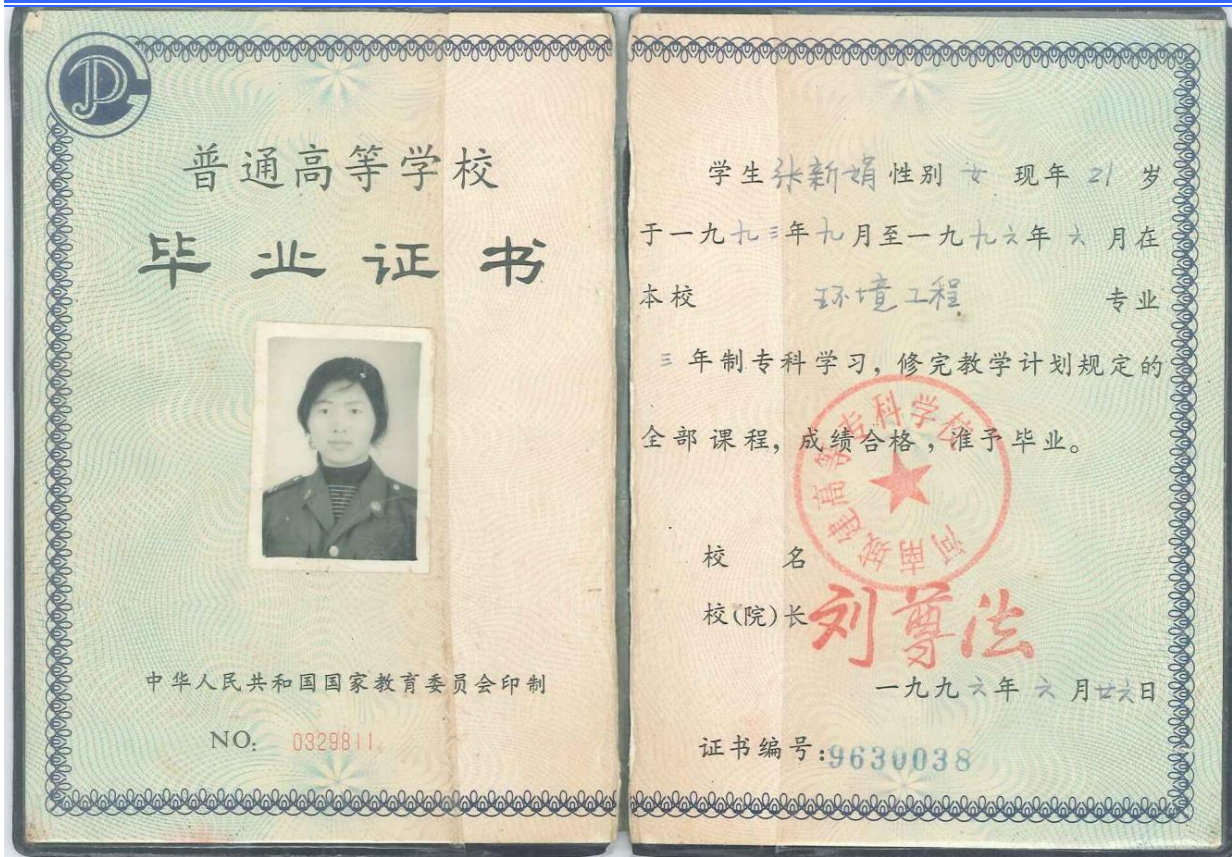 普通高等学校
毕业证书
中华人民共和国国家教育委员会印制
NO: 0329811
学生张新娟性别 女 现年 21 岁
于一九九三年九月至一九九六年六月在
本校 环境工程 专业
三年制专科学习，修完教学计划规定的
全部课程，成绩合格，准予毕业。
河南城建高等专科学校
校 名
校(院)长 刘尊法
一九九六年六月廿六日
证书编号:9630038